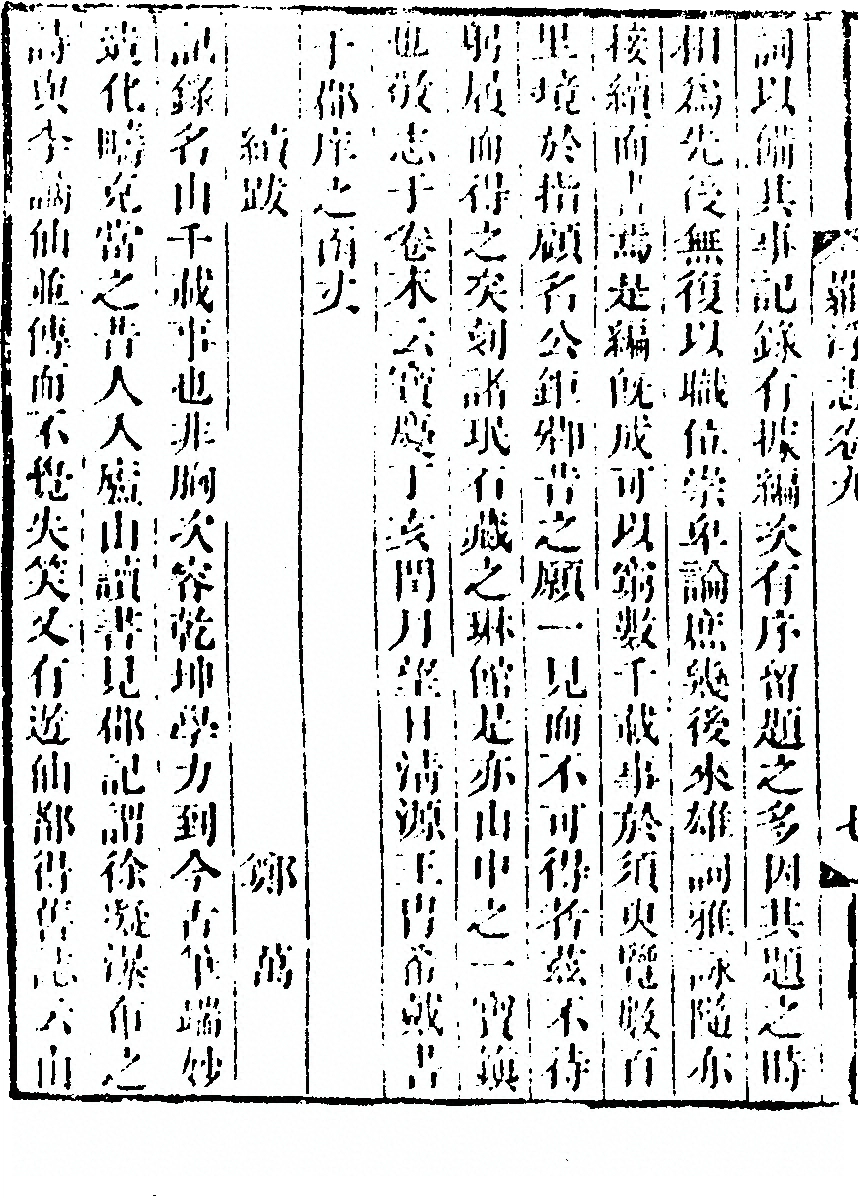 羅浮志卷九
七
詞以備其事記錄有據編次有序留題之多因其題之時
相爲先後無復以職位崇卑論庶幾後來雄詞雅詠隨亦
接續而書焉是編既成可以窮數千載事於須臾覽數百
里境於指顧名公鉅卿昔之願一見而不可得者茲不待
躬屐而得之矣刻諸珉石藏之琳館是亦山中之一寶鎮
也敬志于卷末云寶慶丁亥閏月望日清源王冑希戴書
于郡庠之南丈
續跋
鄭 萬
記錄名山千載事也非胸次容乾坤學力到今古筆端妙
造化疇克當之昔人入廬山讀書見郡記謂徐凝瀑布之
詩與李謫仙並傳而不覺失笑又有遊仙都得舊志云山